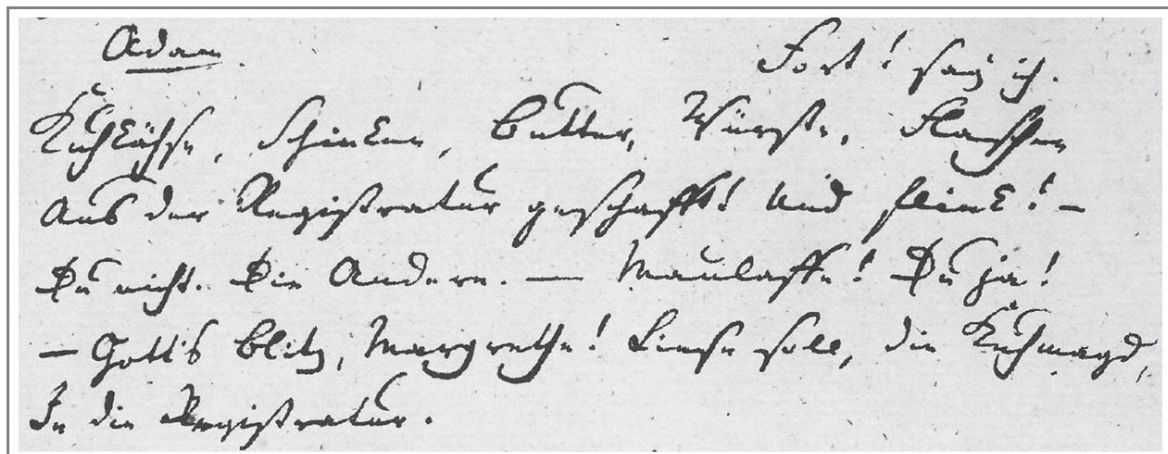 Adam Fort! sag ich.
Kuhkäse, Schinken, Butter, Würste, Flaschen
Aus der Registratur geschafft! Und flink! –
Du nicht. Die Andere. – Maulaffe! Du ja!
– Gott's Blitz, Margrethe! Liese soll, die Kuhmagd,
In die Registratur.